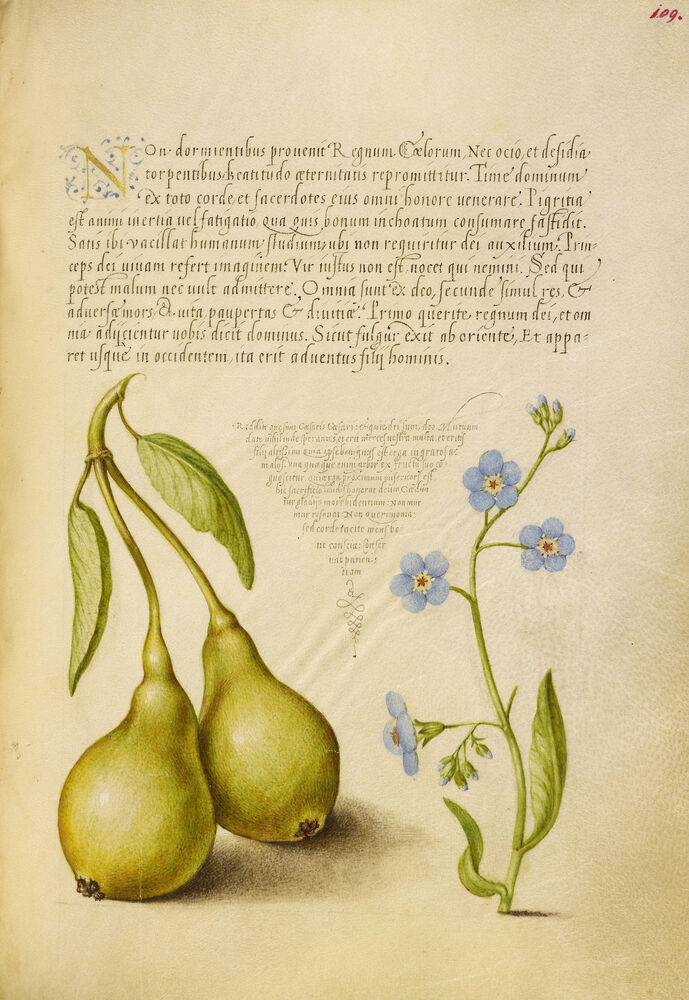 109.
NOn dormientibus prouenit Regnum Cœlorum, Nec ocio, et desidia
torpentibus beatitudo æternitatis repromittitur. Time dominum
ex toto corde, et sacerdotes eius omni honore venerare. Pigritia
est animi inertia uel fatigatio, qua quis bonum inchoatum consumare fastidit.
Satis ibi vacillat humanum studium, ubi non requiritur dei auxilium. Prin-
ceps dei uiuam refert imaginem. Vir iustus non est, nocet qui nemini. Sed qui
potest malum nec uult admittere. Omnia sunt ex deo, secunde simul res, &
aduersæ mors, & uita, paupertas & diuitiæ. Primo querite, regnum dei, et om
nia adijcientur uobis dicit dominus. Sicut fulgur exit ab oriente, Et appa-
ret usque in occidentem, ita erit aduentus filij hominis.
Reddite que sunt Cæsaris Cæsari: et quæ dei sunt, deo. Mutuum
date nihil inde sperantes et erit merces uestra multa, et eritis
filij altissimi quia ipse benignus est erga ingratos ac
malos. Vna quæque enim arbor ex fructu suo co-
gnoscitur. quia proximum
hic sacrificio laudis honorat deum Cædun
tur gladiis more bidentium: Non mur
mur resonat Non querimonia:
sed corde tacito mens be
ne conscia: conser
uat patien-
tiam